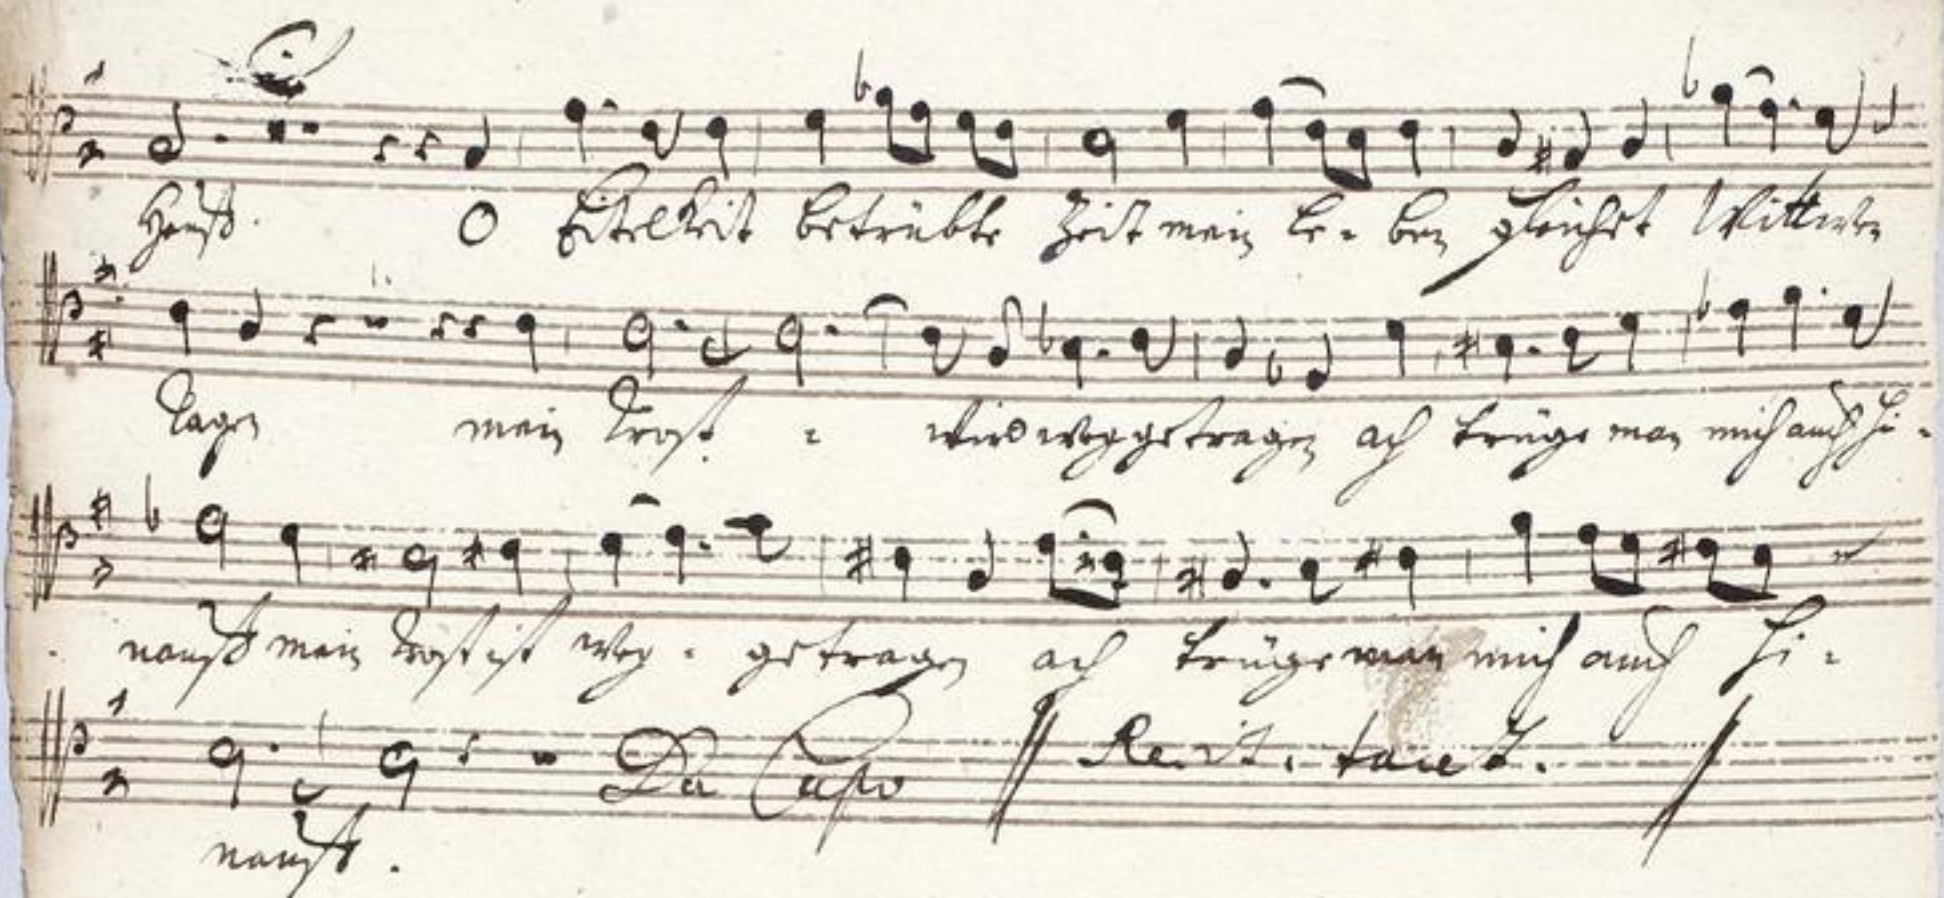 Hauß. O Eitelkeit betrübte Zeit mein Le- ben gleichet Wittwen
Tagen mein Trost - wird weggetragen ach trüge man mich auch hi-
nauß mein Trost ist weg- getragen ach trüge man mich auch hi-
Da Capo Recit. tacet.
nauß.